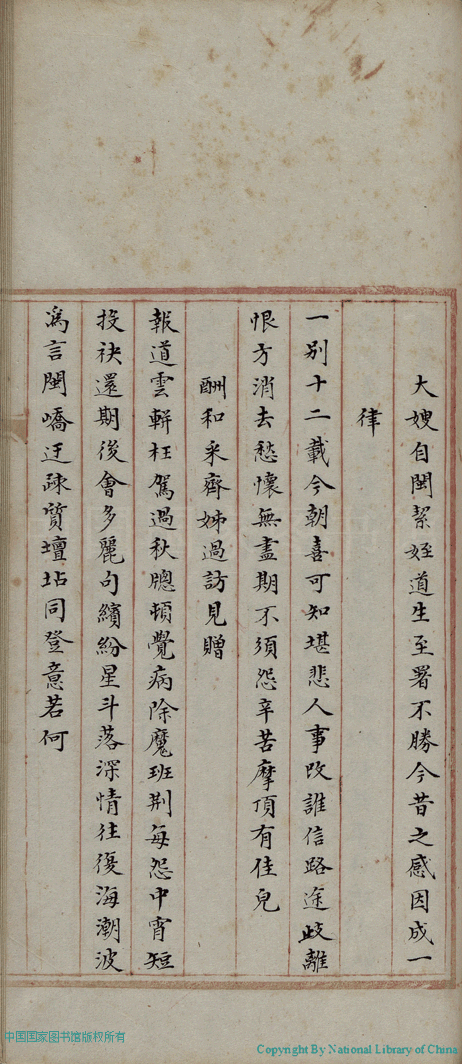 大嫂自閩絜姪道生至署不勝今昔之感因成一
律
一别十二載今朝喜可知堪悲人事改誰信路途歧離
恨方消去愁懷無盡期不須怨辛苦摩頂有佳兒
酬和采齊姊過訪見贈
報道雲軿枉駕過秋牕頓覺病除魔班荆每怨中宵短
投袂還期後會多麗句繽紛星斗落深情往復海潮波
為言閩嶠迂疎質壇坫同登意若何
中国国家图书馆版权所有
Copyright By National Library of China